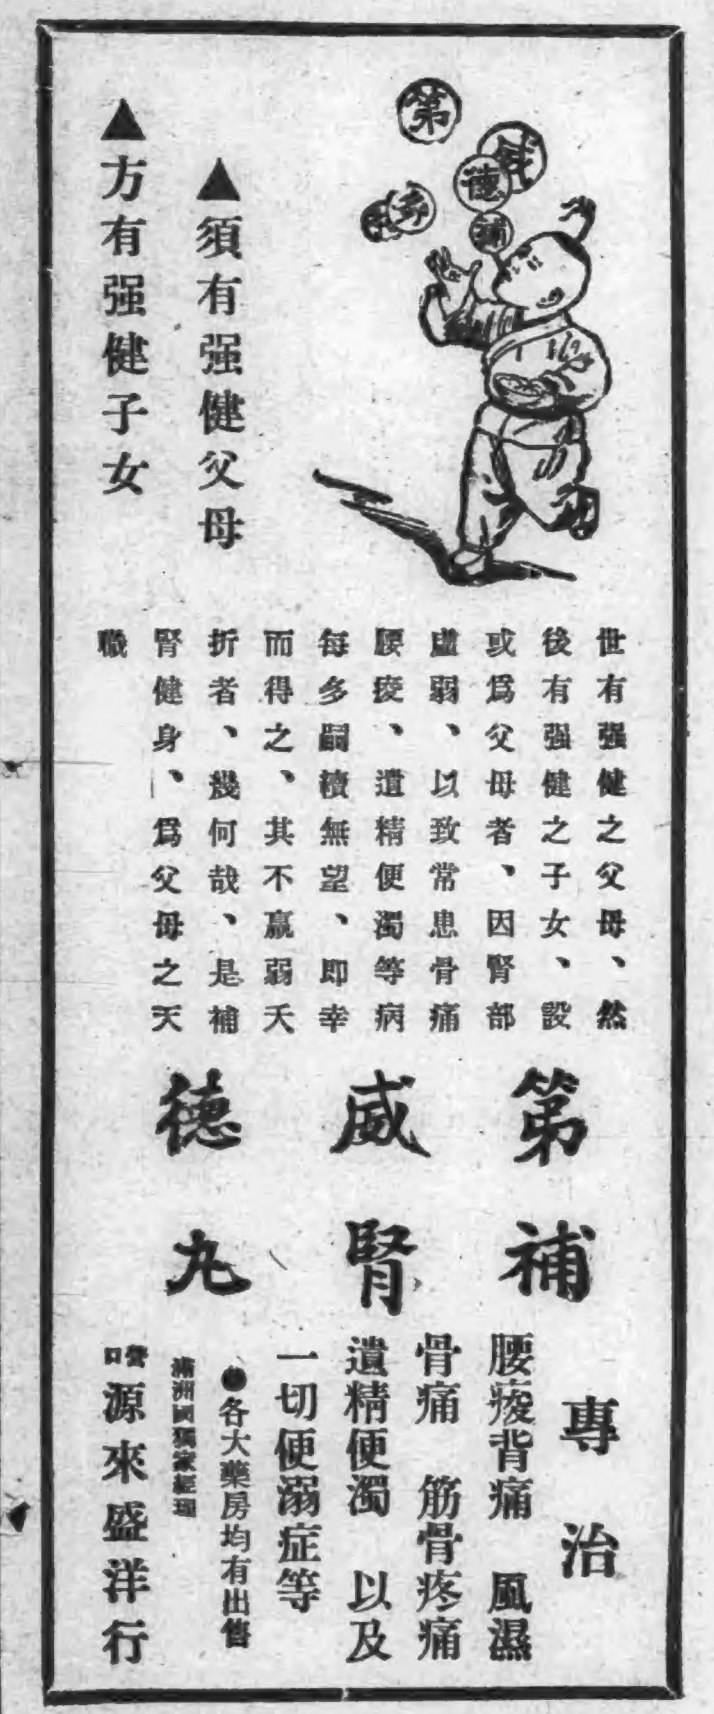 ▲須有强健父母
▲方有强健子女
世有强健之父母、然
後有强健之子女、設
或爲父母者、因腎部
虛弱、以致常患骨痛
腰痠、遺精便濁等病
每多嗣續無望、即幸
而得之、其不羸弱夭
折者、幾何哉、是補
腎健身、爲父母之天
職
第威德
補腎丸
專治
腰痠背痛 風濕
骨痛 筋骨疼痛
遺精便濁 以及
一切便溺症等
●各大藥房均有出售
滿洲國獨家經理
營口 源來盛洋行
第
德
補